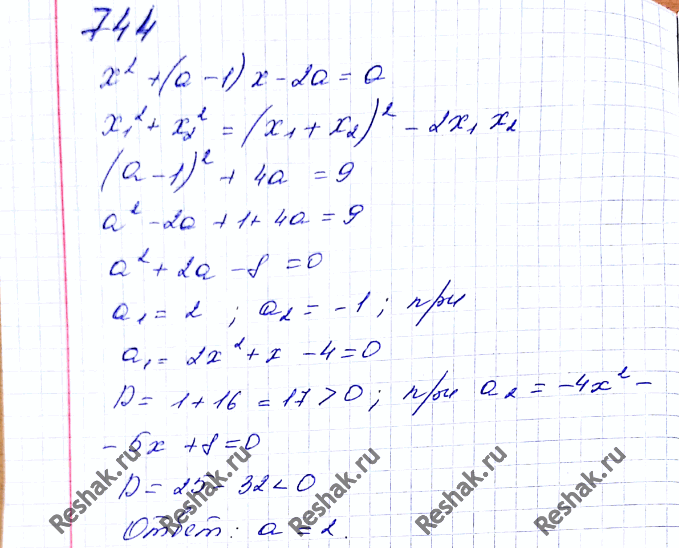 744
x² + (a - 1) x - 2a = a
x₁² + x₂² = (x₁ + x₂)² - 2x₁ x₂
(a - 1)² + 4a = 9
a² - 2a + 1 + 4a = 9
a² + 2a - 8 = 0
a₁ = 2 ; a₂ = -1 ; при
a₁ = 2x² + x - 4 = 0
D = 1 + 16 = 17 > 0 ; при a₂ = -4x² -
- 5x + 8 = 0
D = 25 - 32 < 0
Ответ: a = 2.
Reshak.ru
Reshak.ru
Reshak.ru
Reshak.ru
Reshak.ru